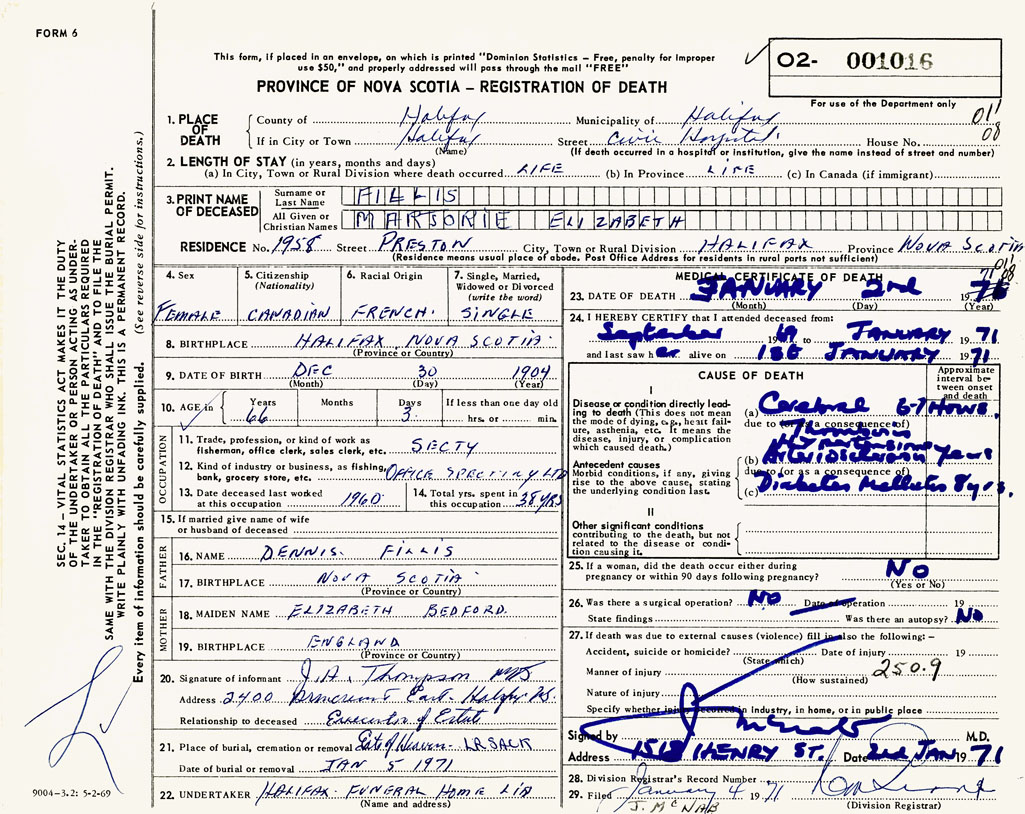 FORM 6
This form, if placed in an envelope, on which is printed "Dominion Statistics – Free, penalty for improper
use $50," and properly addressed will pass through the mail "FREE"
02- 001016
PROVINCE OF NOVA SCOTIA – REGISTRATION OF DEATH
For use of the Department only
011
08
1. PLACE OF DEATH
County of Halifax Municipality of Halifax
If in City or Town Halifax Street Civic Hospital House No.
(Name) (If death occurred in a hospital or institution, give the name instead of street and number)
2. LENGTH OF STAY (in years, months and days)
(a) In City, Town or Rural Division where death occurred LIFE (b) In Province LIFE (c) In Canada (if immigrant)
3. PRINT NAME OF DECEASED
Surname or Last Name FILLIS
All Given or Christian Names MARJORIE ELIZABETH
RESIDENCE No. 1958 Street PRESTON City, Town or Rural Division HALIFAX Province NOVA SCOTIA
(Residence means usual place of abode. Post Office Address for residents in rural parts not sufficient)
011
08
4. Sex
FEMALE
5. Citizenship
(Nationality)
CANADIAN
6. Racial Origin
FRENCH
7. Single, Married,
Widowed or Divorced
(write the word)
SINGLE
8. BIRTHPLACE HALIFAX NOVA SCOTIA
(Province or Country)
9. DATE OF BIRTH DEC 30 1904
(Month) (Day) (Year)
10. AGE in
Years Months Days If less than one day old
66 3 hrs. or min.
OCCUPATION
11. Trade, profession, or kind of work as
fisherman, office clerk, sales clerk, etc. SECTY
12. Kind of industry or business, as fishing,
bank, grocery store, etc. OFFICE SPECIALTY LTD
13. Date deceased last worked
at this occupation 1960
14. Total yrs. spent in
this occupation 38 YRS
15. If married give name of wife
or husband of deceased
FATHER
16. NAME DENNIS FILLIS
17. BIRTHPLACE NOVA SCOTIA
(Province or Country)
MOTHER
18. MAIDEN NAME ELIZABETH BEDFORD
19. BIRTHPLACE ENGLAND
(Province or Country)
20. Signature of informant J. A. Thompson
Address 2400 East Halifax NS
Relationship to deceased Executor of Estate
21. Place of burial, cremation or removal Gate of Heaven - LR SACK
Date of burial or removal JAN 5 1971
22. UNDERTAKER HALIFAX FUNERAL HOME
(Name and address)
MEDICAL CERTIFICATE OF DEATH
23. DATE OF DEATH JANUARY 2nd 19 71
(Month) (Day) (Year)
24. I HEREBY CERTIFY that I attended deceased from:
September 1969 to JANUARY 1971
and last saw her alive on 1st JANUARY 1971
CAUSE OF DEATH
Approximate
interval be-
tween onset
and death
I
Disease or condition directly lead-
ing to death (This does not mean
the mode of dying, e.g., heart fail-
ure, asthenia, etc. It means the
disease, injury, or complication
which caused death.)
(a) Cerebral 6-7 Hours.
due to (or as a consequence of)
Thrombosis
Antecedent causes
Morbid conditions, if any, giving
rise to the above cause, stating
the underlying condition last.
(b) years
due to (or as a consequence of)
(c) Diabetes Mellitus 8 yrs.
II
Other significant conditions
contributing to the death, but not
related to the disease or condi-
tion causing it.
25. If a woman, did the death occur either during
pregnancy or within 90 days following pregnancy? NO
(Yes or No)
26. Was there a surgical operation? NO Date of operation 19
State findings Was there an autopsy? NO
27. If death was due to external causes (violence) fill in also the following: –
Accident, suicide or homicide? Date of injury 19
(State which)
Manner of injury 250.9
(How sustained)
Nature of injury
Specify whether injury occurred in industry, in home, or in public place
Signed by M.D.
Address 1518 HENRY ST. Date 2nd JAN 1971
28. Division Registrar's Record Number
29. Filed January 4 1971
J. McNAB
(Division Registrar)
SEC. 14 – VITAL STATISTICS ACT MAKES IT THE DUTY
OF THE UNDERTAKER OR PERSON ACTING AS UNDER-
TAKER TO OBTAIN ALL THE PARTICULARS REQUIRED
IN THE "REGISTRATION OF DEATH" AND TO FILE THE
SAME WITH THE DIVISION REGISTRAR WHO SHALL ISSUE THE BURIAL PERMIT.
WRITE PLAINLY WITH UNFADING INK. THIS IS A PERMANENT RECORD.
Every item of information should be carefully supplied. (See reverse side for instructions.)
9004-3.2: 5-2-69